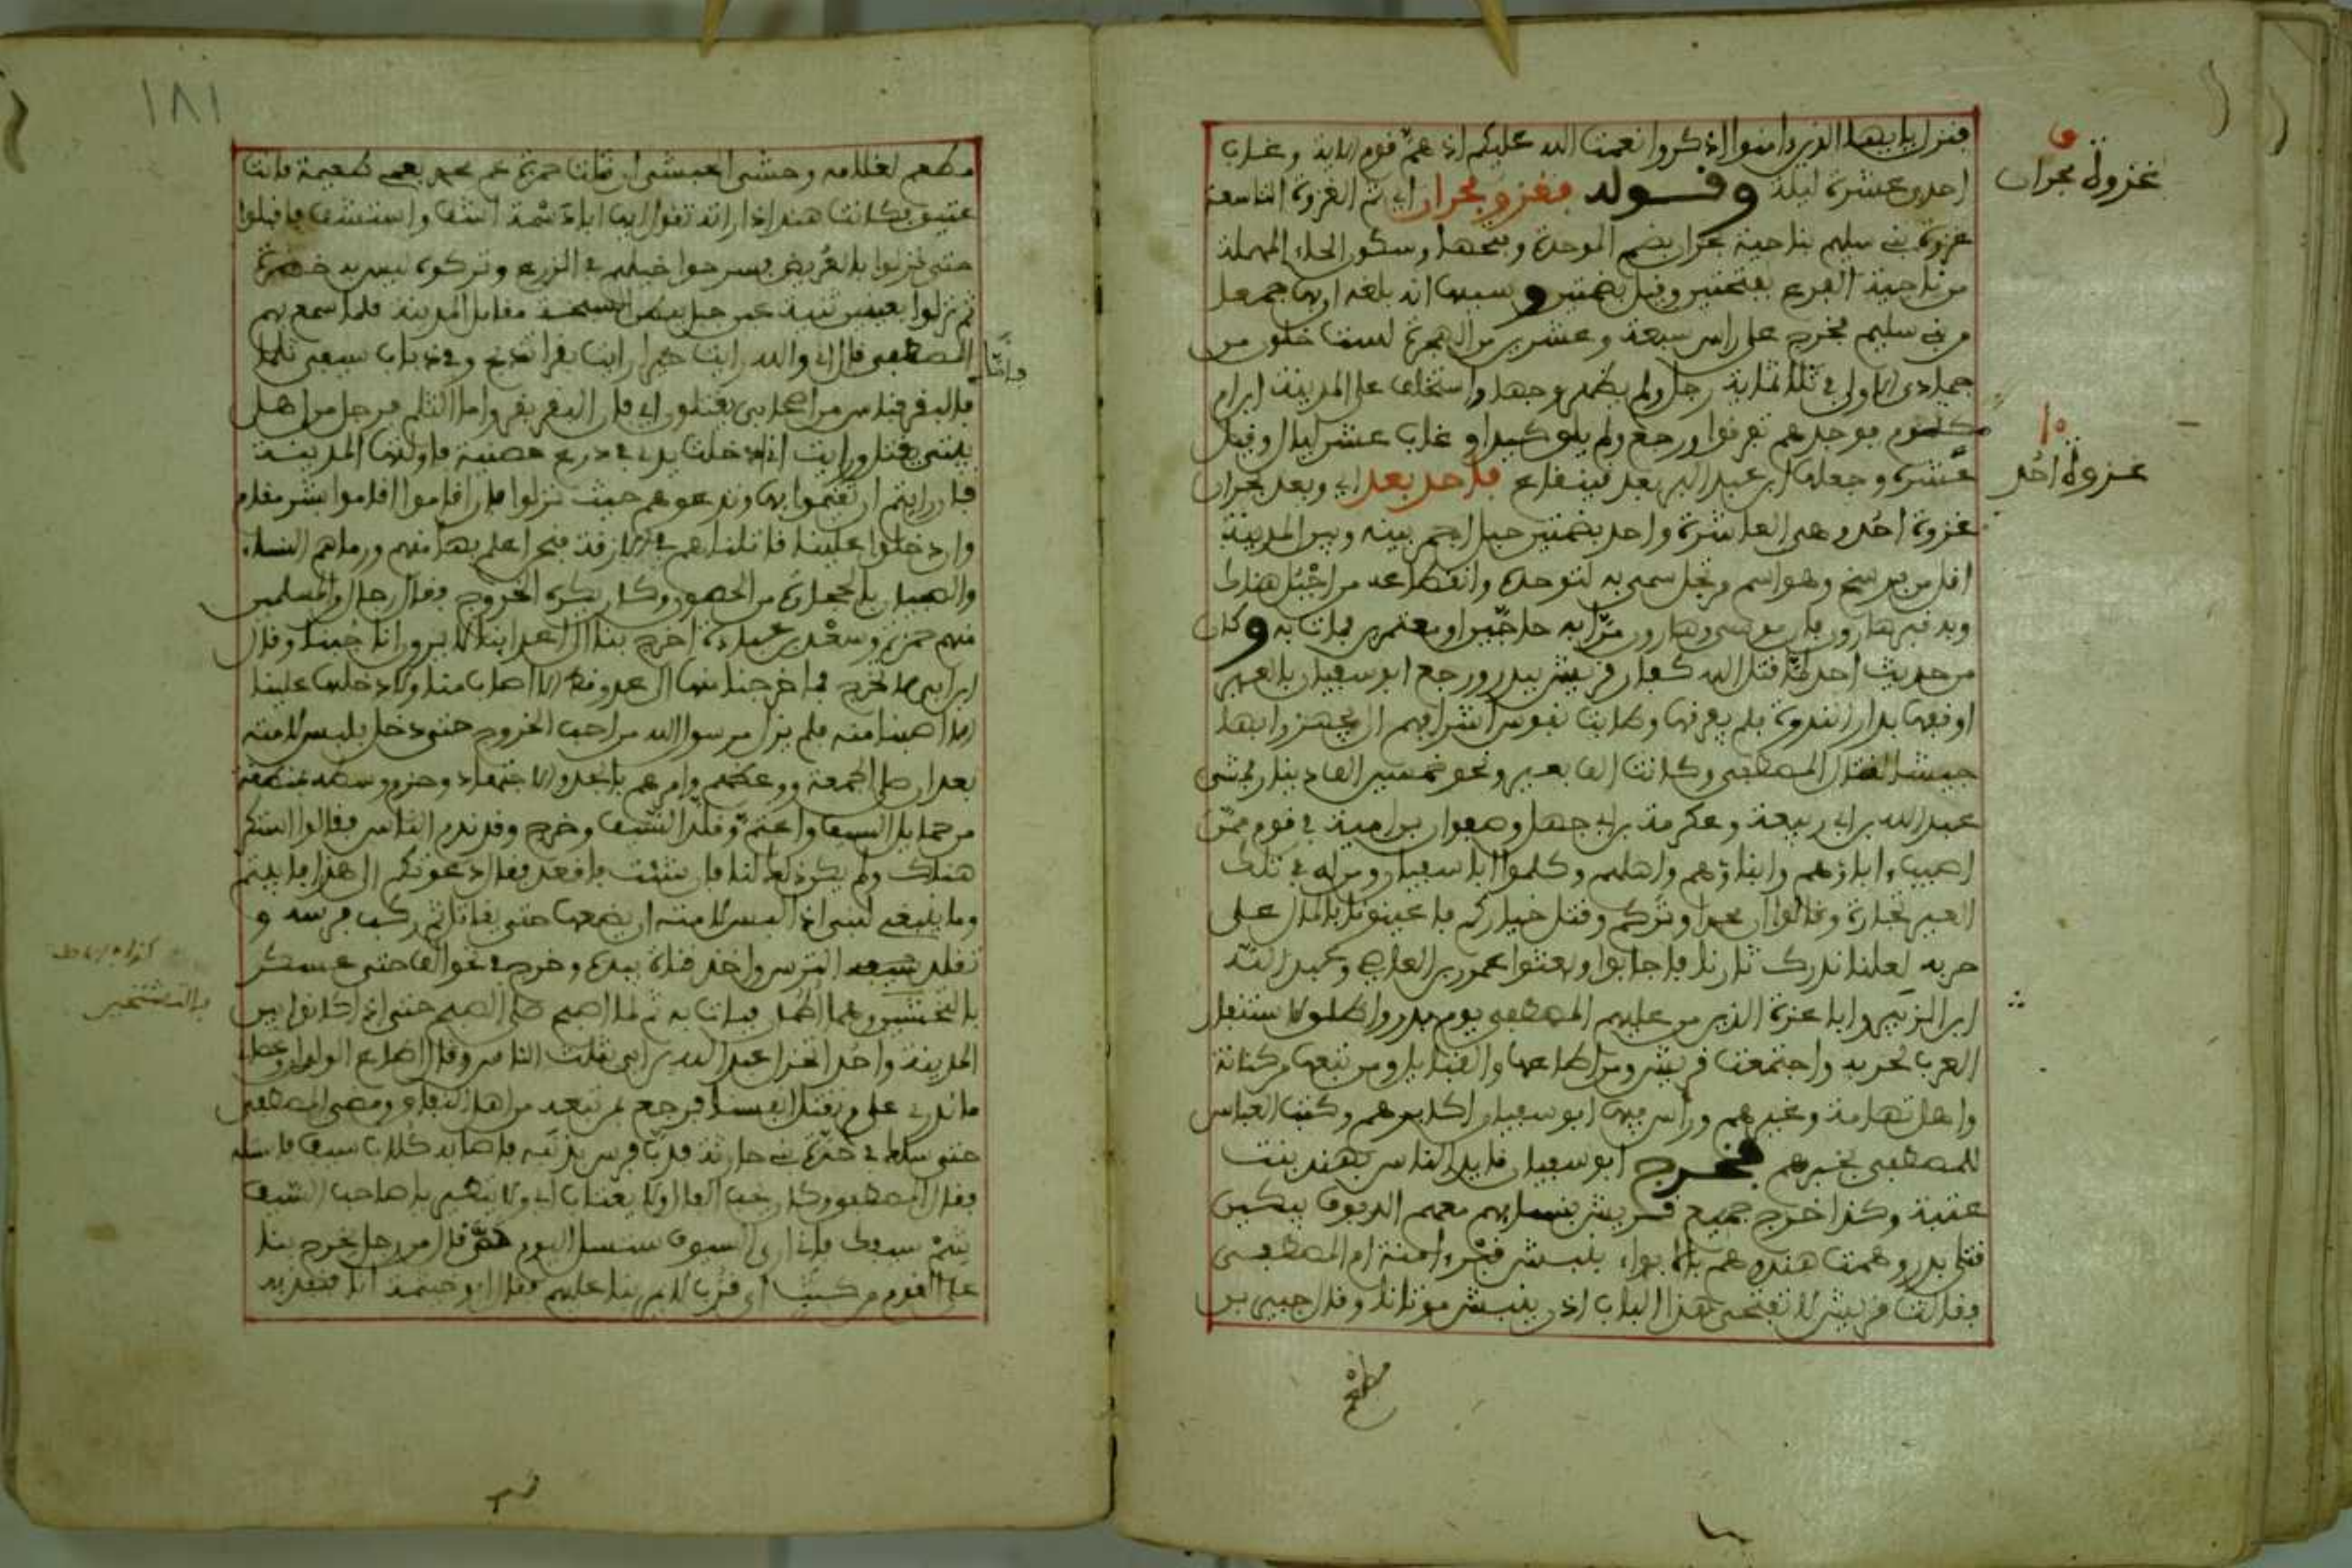 فنزل يا يها الذين ءامنوا اذكروا نعمت الله عليكم اذ هم قوم الاية وغاب
غزوة بحران
احدى عشرة ليلة وقوله فغزو بحران اي ثم الغزوة التاسعة
غزوة بني سليم بناحية بحران بضم الموحدة وفتحها وسكون الحاء المهملة
من ناحية الفرع بفتحتين وقيل بضمتين وسببها انه بلغه ان بها جمعا
من بني سليم فخرج على راس سبعة وعشرين من الهجرة لست خلون من
جمادى الاولى في ثلاثماية رجل ولم يظهر وجها واستخلف على المدينة ابن ام
مكتوم فوجدهم تفرقوا ورجع ولم يلق كيدا وغاب عشر ليال وقيل
١٠
غزوة احد
عشرة وجعلها ابن عبد البر بعد قينقاع فاحد بعد اي وبعد بحران
غزوة احد وهي العاشرة واحد بضمتين جبل احمر بينه وبين المدينة
اقل من فرسخ وهو اسم مرتجل سمي به لتوحده وانقطاعه من اجبل هناك
وبه قبر هارون اخي موسى وهارون مرا به حاجين او معتمرين فمات به وكان
من حديث احد لما قتل الله كفار قريش ببدر ورجع ابو سفيان بالعير
اوقفها بدار الندوة فلم يفرقها وطابت نفوس اشرافهم ان يجهزوا بها
جيشا لقتال المصطفى وكانت الف بعير ونحو خمسين الف دينار فمشى
عبد الله بن ابي ربيعة وعكرمة بن ابي جهل وصفوان بن امية في قوم ممن
اصيب ءاباؤهم وابناؤهم واهلهم وكلموا ابا سفيان ومن له في تلك
العير تجارة وقالوا ان محمدا وتركم وقتل خياركم فاعينونا بالمال على
حربه لعلنا ندرك ثارنا فاجابوا وبعثوا عمرو بن العاص وعبد الله
ابن الزبير وابا عزة الذي من عليهم المصطفى يوم بدر واطلقوا استنفار
العرب لحربه واجتمعت قريش ومن اطاعها والقبايل ومن تبعها من كنانة
واهل تهامة وغيرهم وراس فيها ابو سفيان اكابرهم وكتب العباس
للمصطفى بخبرهم فخرج ابو سفيان قايد الناس بهند بنت
عتبة وكذا خرج جميع قريش بنسايهم معهم الدفوف يبكين
قتلى بدر وهمت هند وهم بالابواء بنبش قبر ءامنة ام المصطفى
فقالت قريش لا نفتح هذا الباب اذن ينبش موتانا وقال جبير بن
مطعم
١٨١
مطعم لغلامه وحشي الحبشي ان قتلت حمزة عم محمد بعمي طعيمة فانت
عتيق فكانت هند اذا راته تقول ايها ابا دسمة اشف واستشف فاقبلوا
حتى نزلوا بالعريض فسرحوا خيلهم في الزرع وتركوه ليس به خضرة
ثم نزلوا بعينين ثنية عن جبل ببطن السبخة مقابل المدينة فلما سمع بهم
المصطفى قال اني والله رايت خيرا رايت بقرا تذبح وفي ذباب سيفي ثلما
فالبقر فناس من اصحابي يقتلون اي قال البقر بقر واما الثلم فرجل من اهل
بيتي يقتل ورايت اني ادخلت يدي في درع حصينة فاولتها المدينة
فان رايتم ان تقيموا بها وندعوهم حيث نزلوا فان اقاموا اقاموا بشر مقام
وان دخلوا علينا قاتلناهم في الازقة فنحن اعلم بها منهم ورماهم النساء
والصبيان بالحجارة من الحصون وكان يكره الخروج فقال رجال من المسلمين
منهم حمزة وسعد بن عبادة اخرج بنا الى اعدائنا لا يرون انا جبنا وقال
ابن ابي لا تخرج فما خرجنا منها الى عدو قط الا اصاب منا ولا دخلها علينا
الا اصبنا منه فلم يزل برسول الله من احب الخروج حتى دخل فلبس لامته
بعد ان صلى الجمعة ووعظهم وامرهم بالجد والاجتهاد وحزم وسطه بمنطقة
من حمايل السيف واعتم وقلد السيف وخرج وقد ندم الناس فقالوا استكر
هناك ولم يكن ذلك لنا فان شئت فاقعد فقال دعوتكم الى هذا فابيتم
وما ينبغي لنبي اذا لبس لامته ان يضعها حتى يقاتل ثم ركب فرسه و
تقلد الترس واخذ قناة بيده وخرج في نحو الف حتى عسكر
بالشيخين وهما اطمان فبات به ثم لما اصبح صلى الصبح حتى اذا كانوا بين
المدينة واحد انخزل عبد الله بن ابي بثلث الناس وقال اطاع الولدان وعصاني
ما ندري على م نقتل انفسنا فرجع بمن تبعه من اهل النفاق ومضى المصطفى
حتى سلك في حرة بني حارثة فذب فرس بذنبه فاصاب كلاب سيف فاستله
فقال المصطفى وكان يحب الفال ولا يعتاف اي ولا يتطير يا صاحب السيف
شم سيفك فاني ارى السيوف ستسل اليوم ثم قال من رجل يخرج بنا
على القوم من كثب اي قرب لا يمر بنا عليهم فقال ابو خيثمة انا فنفذ به